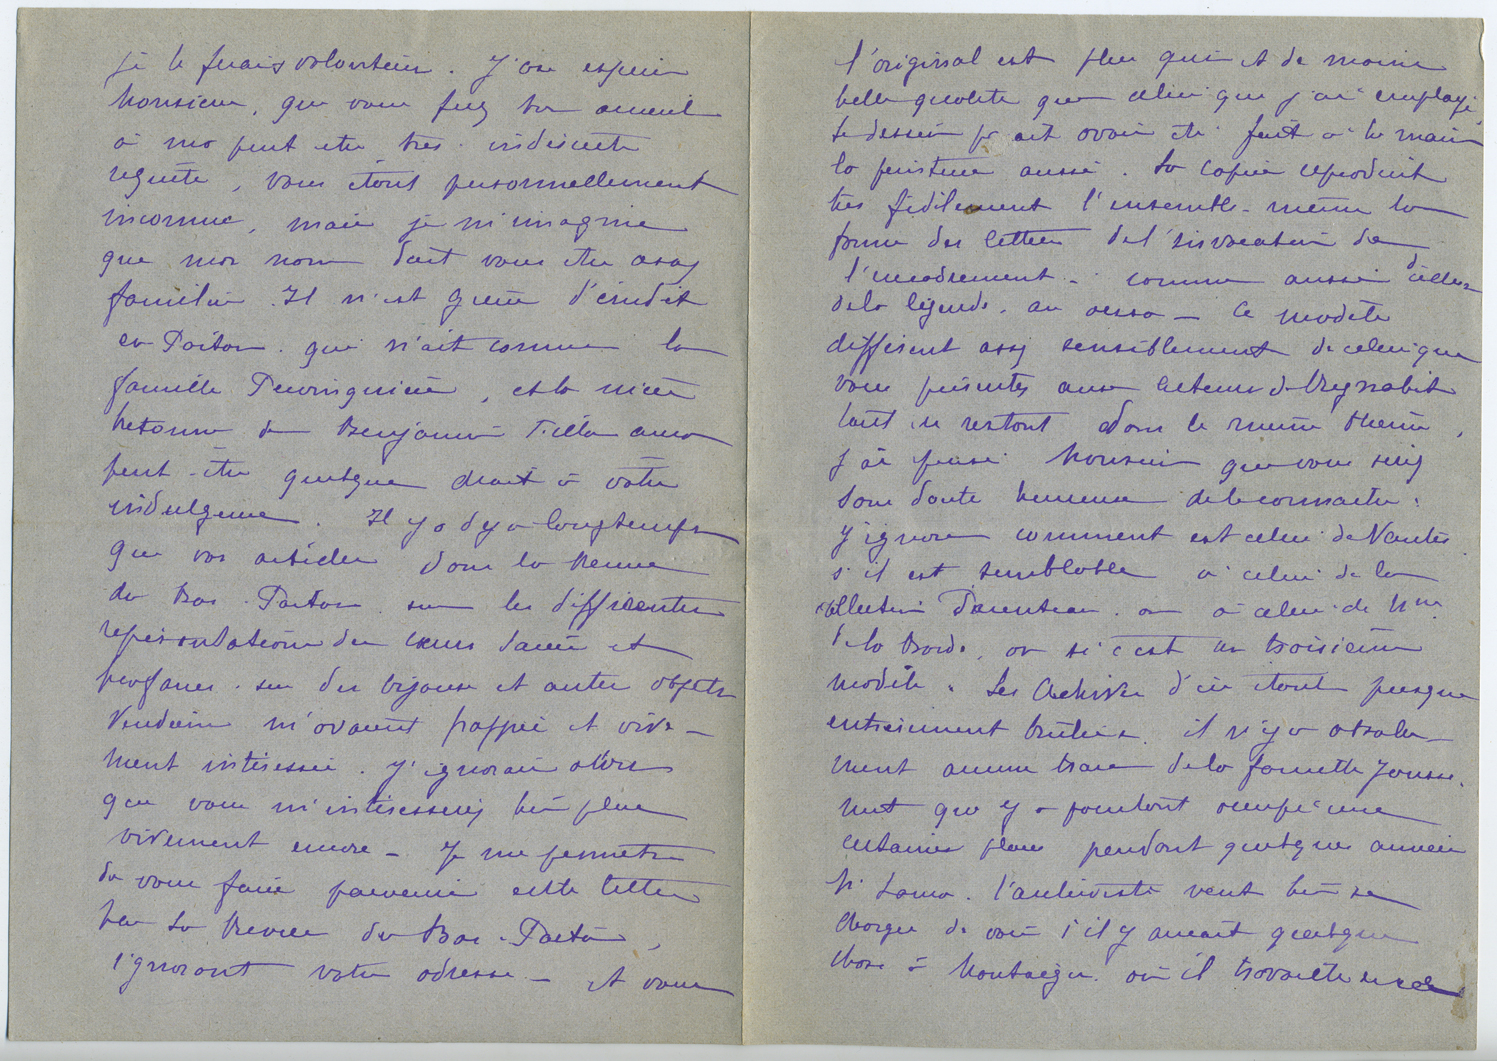 je le ferais volontiers. J'ose espérer
Monsieur, que vous ferez bon accueil
à ma peut etre très indiscrète
requête, vous étant personnellement
inconnue, mais je m'imagine
que mon nom doit vous etre assez
familier. Il n'est guère d'érudit
en Poitou qui n'ait connu la
famille, et la nièce
de Benjamin Fillon aura
peut-être quelque droit à votre
indulgence. Il y a dejà longtemps
que vos articles dans la Revue
du Bas-Poitou sur les différentes
représentations du coeurs sacrés et
profanes sur des bijoux et autres objets
Vendéens m'avaient frappée et vive-
ment intéressée. J'ignorais alors
que vous m'intéresseriez bien plus
vivement encore – Je me permets
de vous faire parvenir cette lettre
par la Revue du Bas-Poitou,
ignorant votre adresse – et vous
l'original est plus que et de moins
belle qualité que celui que j'ai employé,
le dessin pr avoir été fait à la main
la peinture aussi. La copie reproduit
très fidèlement l'ensemble – même la
forme des lettres de l'invocation de
l'encadrement – comme aussi celles
de la légende, au verso – Ce modèle
différent assez sensiblement de celui que
vous présentez aux lecteurs de Regnabit
tout en restant dans le même thème,
j'ai pensé Monsieur que vous seriez
sans doute heureux de le connaitre.
J'ignore comment est celui de Nantes
s'il est semblable à celui de la
collection Parenteau ou à celui de Mme
de la Borde, ou si c'est un troisième
modèle. Les Archives d'ici étant presque
entièrement brulées il n'y a absolu-
ment aucune trace de la famille Jousse-
met qui y a pourtant occupé une
certaine place pendant quelques années
Mr l'archiviste veut bien se
charger de voir s'il y aurait quelque
chose à Montaigu où il travaille